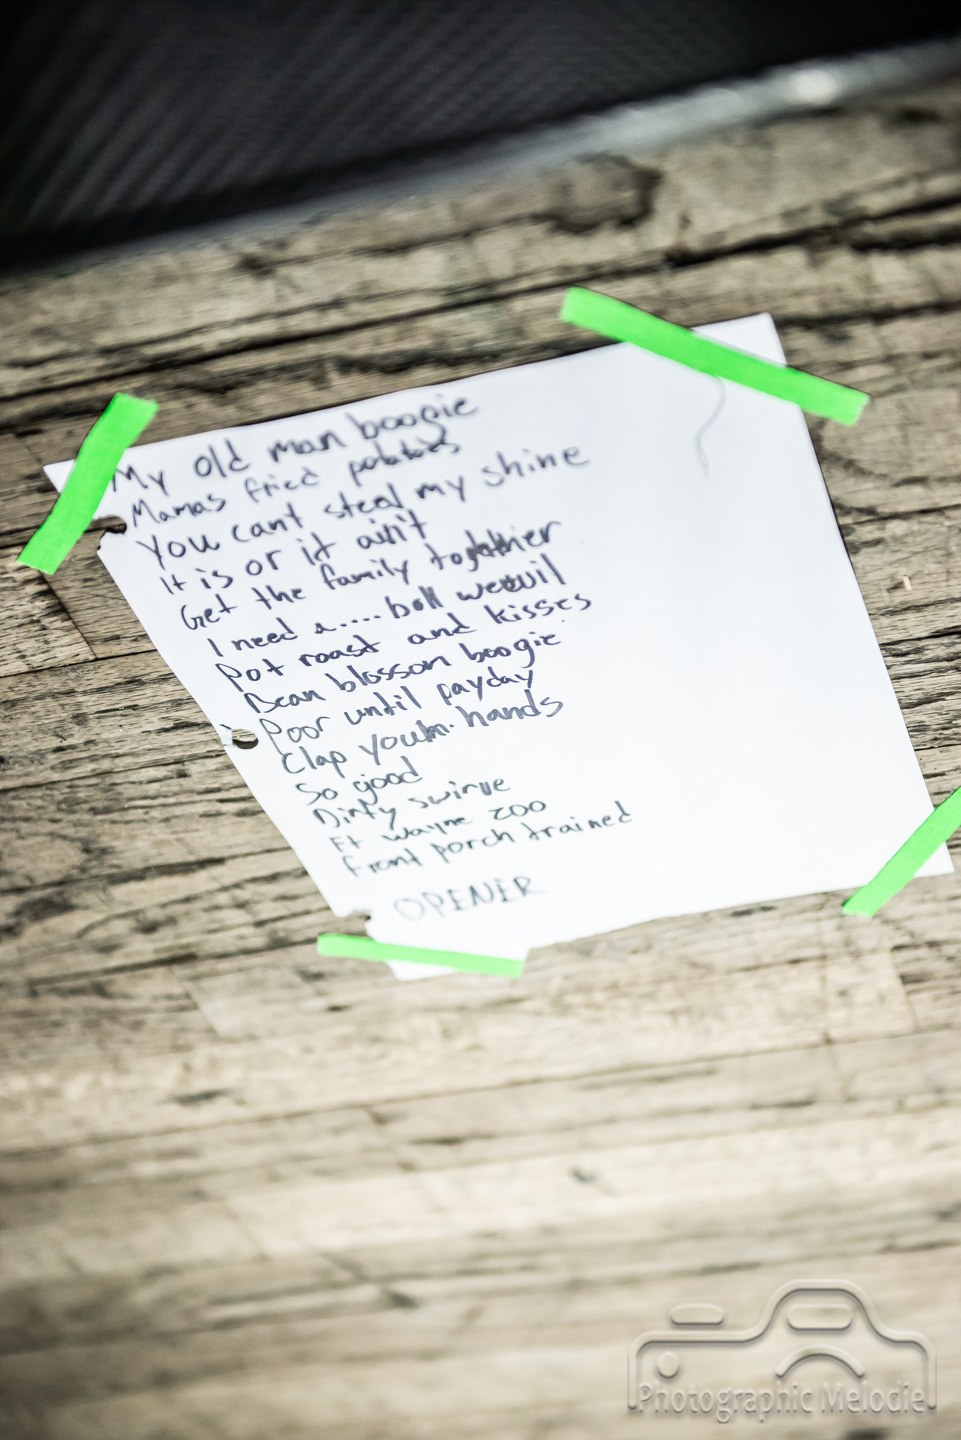 My old man boogie
Mamas fried potatoes
You cant steal my shine
It is or it ain't
Get the family together
I need a.... boll weevil
Pot roast and kisses
Bean blossom boogie
Poor until payday
Clap your hands
So good
Dirty swirve
Ft wayne zoo
front porch trained
OPENER
Photographic Melodie